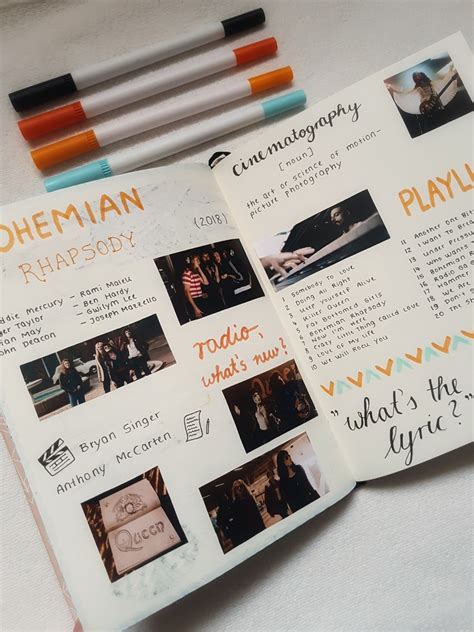 OHEMIAN
RHAPSODY
(2018)
ddie Mercury - Rami Malek
ger Taylor - Ben Hardy
ian May - Gwilym Lee
ohn Deacon - Joseph Mazzello
radio,
what's new?
Bryan Singer
Anthony McCarten
Queen
cinematography
[noun]
the art or science of motion-
picture photography
PLAYLI
1 Somebody To Love
2 Doing All Right
3 Keep Yourself Alive
4 Killer Queen
5 Fat Bottomed Girls
6 Bohemian Rhapsody
7 Now I'm Here
8 Crazy Little Thing Called Love
9 Love Of My Life
10 We Will Rock You
11 Another One Bi
12 I Want To Brea
13 Under Pressu
14 Who Wants
15 Bohemian R
16 Radio Ga
17 Ha
18
19
20
"what's the
lyric?"